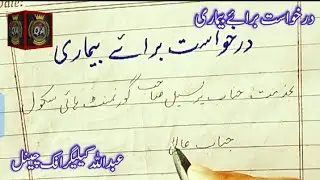 Date:
QA
درخواست برائے بیماری
درخواست برائے بیماری
بخدمت جناب پرنسپل صاحب گورنمنٹ ہائی سکول
جناب عالی
عبداللہ کیلیگرافک چینل